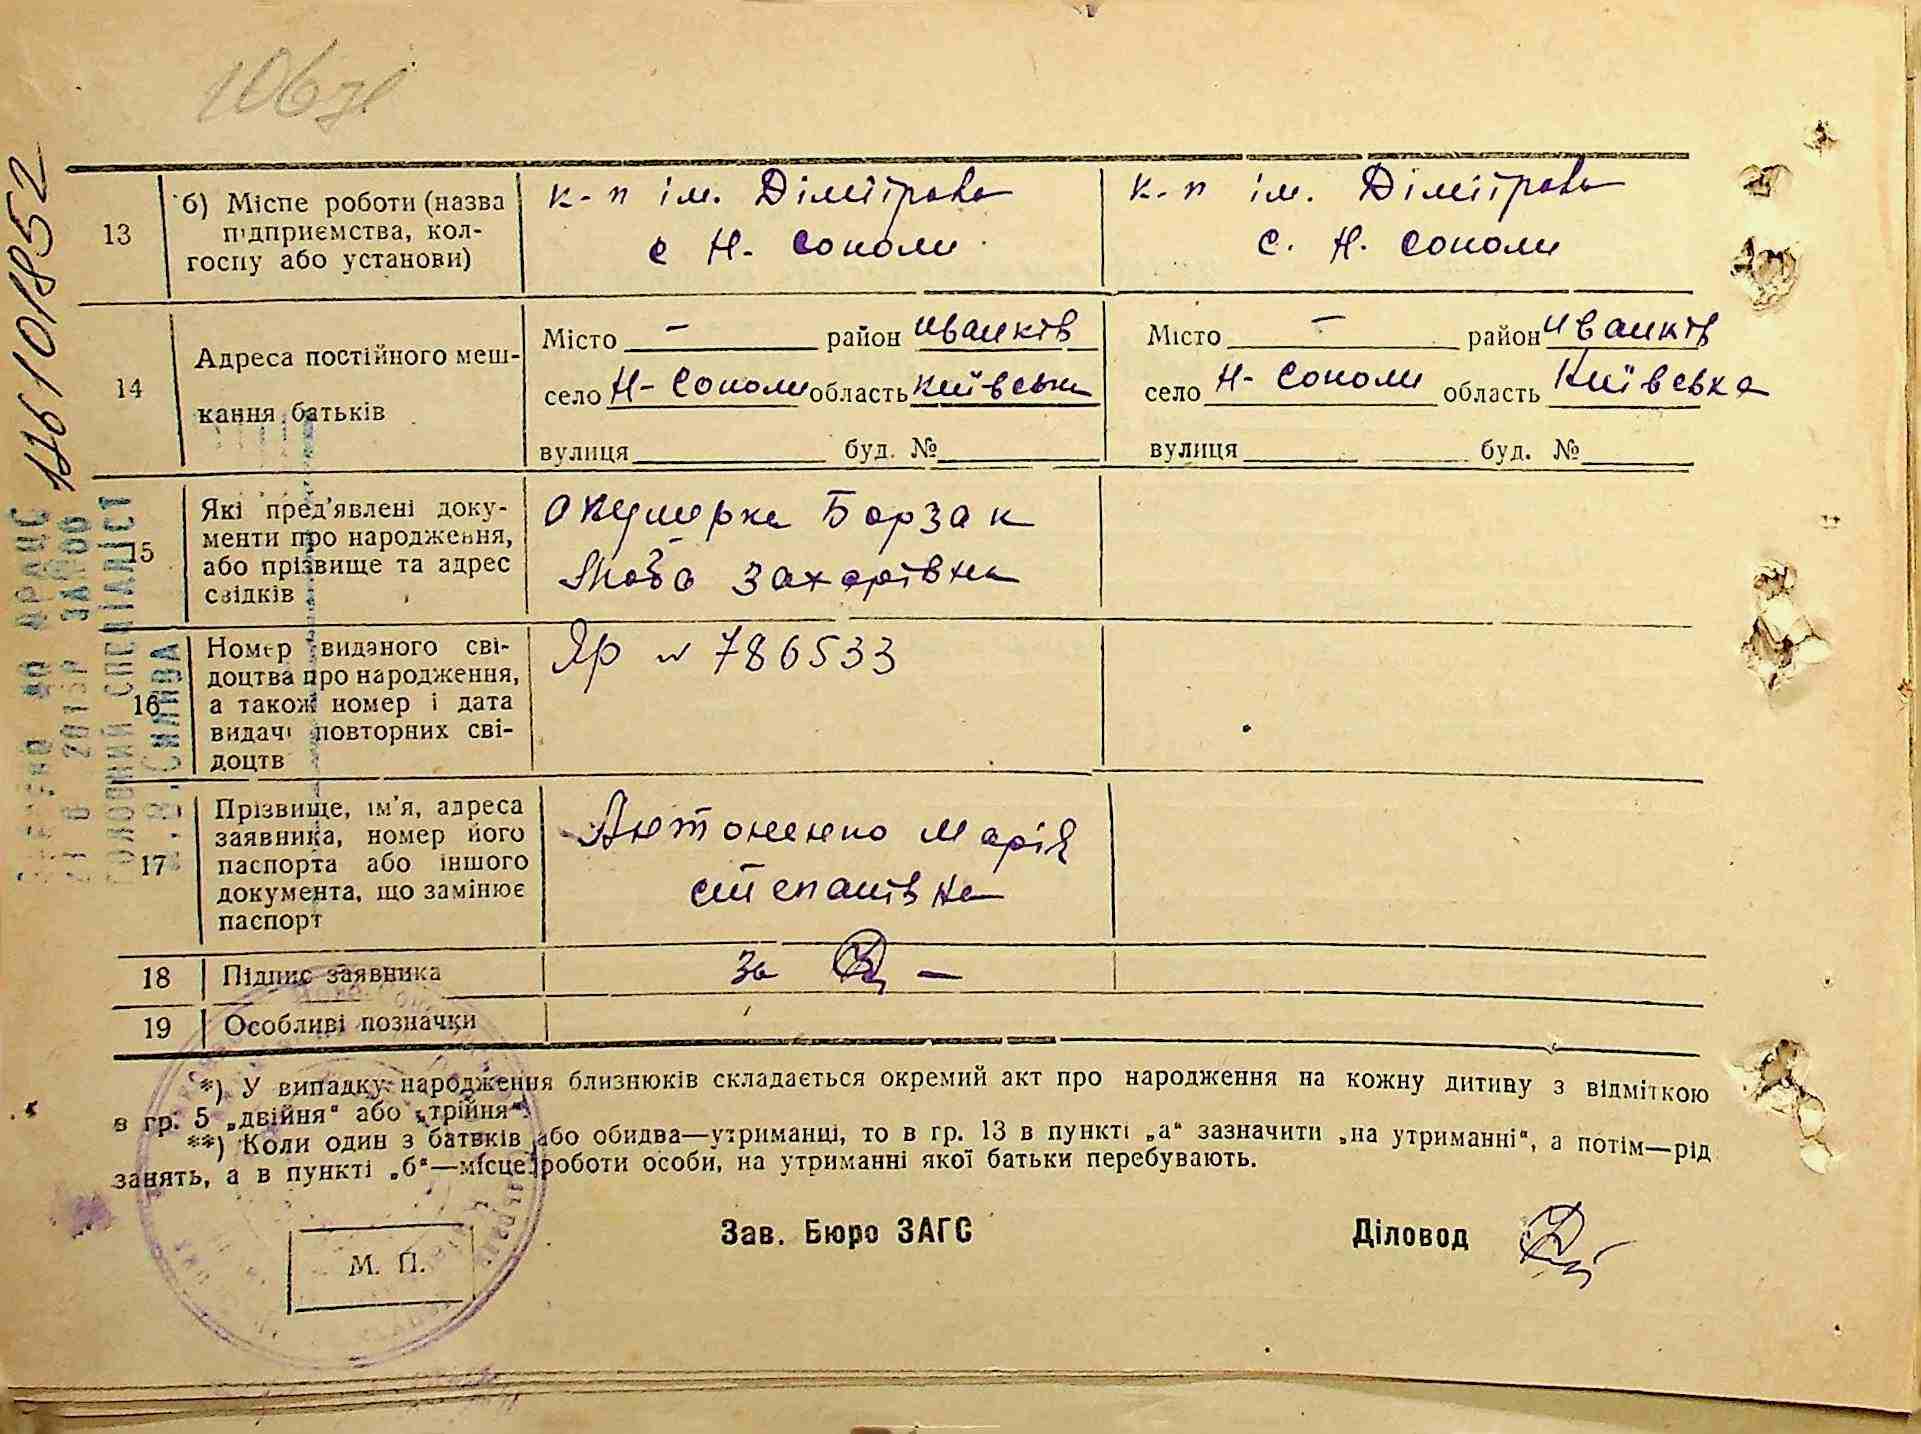 106зв
116101852
13 б) Місце роботи (назва підприємства, колгоспу або установи)
к-п ім. Дімітрова
с Н. Соколи
к-п ім. Дімітрова
с. Н. Соколи
14 Адреса постійного мешкання батьків
Місто – район Иванків
село Н-Соколи область Київська
вулиця буд. №
Місто – район Иванків
село Н-Соколи область Київська
вулиця буд. №
15 Які пред'явлені документи про народження, або прізвище та адрес свідків
Акушерка Борзак
Захарівна
16 Номер виданого свідоцтва про народження, а також номер і дата видачі повторних свідоцтв
ЯР № 786533
17 Прізвище, ім'я, адреса заявника, номер його паспорта або іншого документа, що замінює паспорт
Антоненко Марія
Степанівна
18 Підпис заявника
За –
19 Особливі позначки
*) У випадку народження близнюків складається окремий акт про народження на кожну дитину з відміткою
в гр. 5 „двійня“ або „трійня“.
**) Коли один з батьків або обидва—утриманці, то в гр. 13 в пункті „а“ зазначити „на утриманні“, а потім—рід
занять, а в пункті „б“—місце роботи особи, на утриманні якої батьки перебувають.
Зав. Бюро ЗАГС
Діловод
М. П.
ГОЛОВНИЙ СПЕЦІАЛІСТ